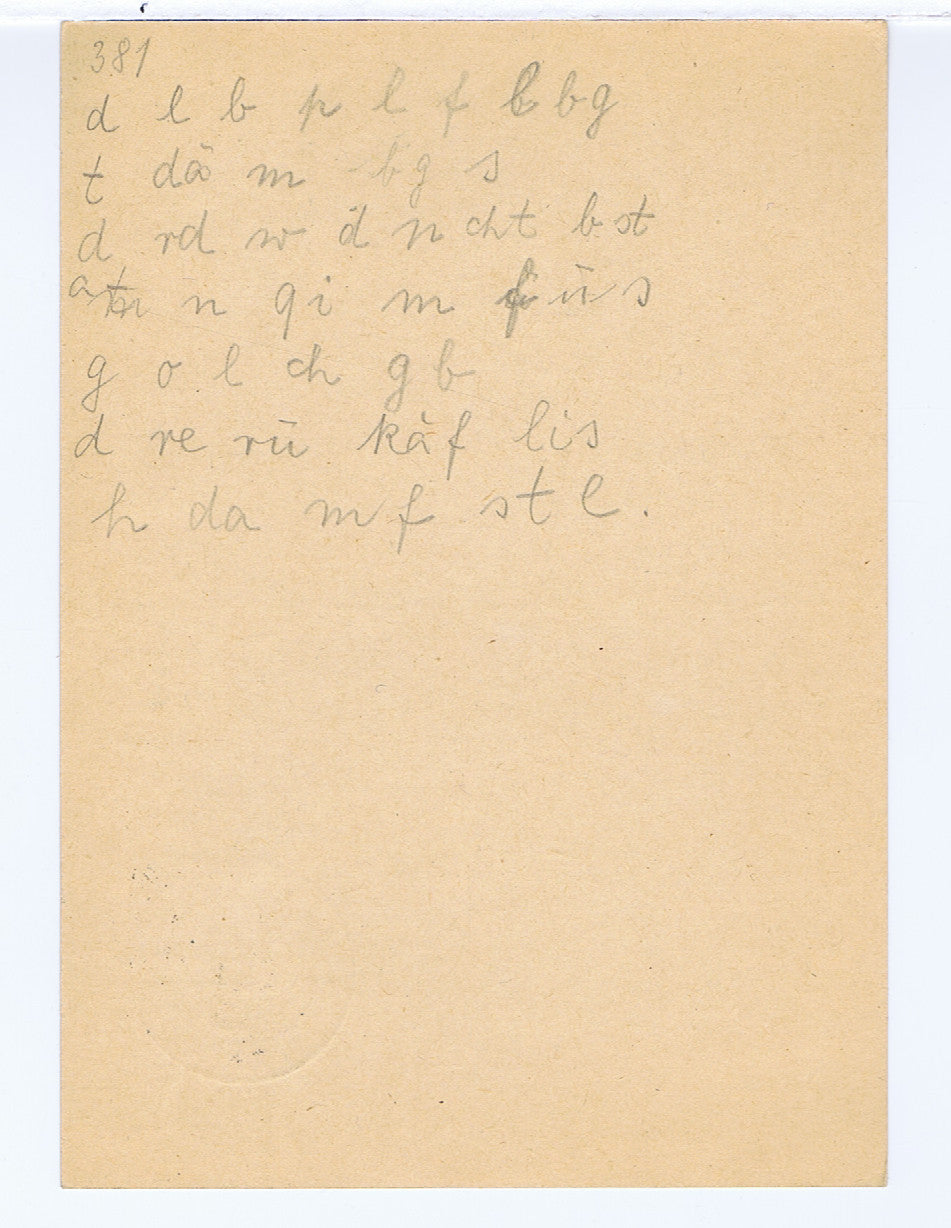 381
d l b p l f b bg
t dä m bg s
d rd w d n cht b st
n qi m ü s
g o l ch g b
d re rü käf lis
h da m f st l.